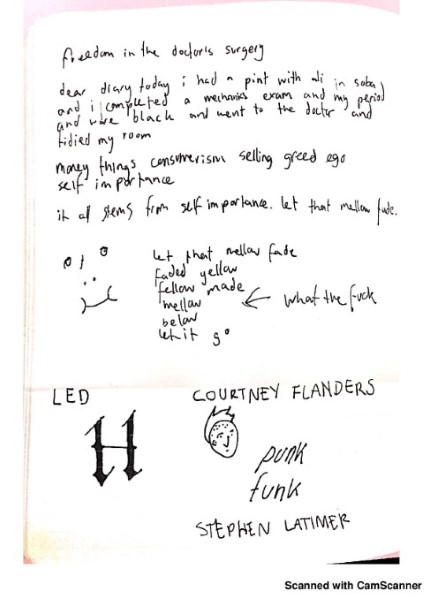 freedom in the doctor's surgery
dear diary today i had a pint with ali in saba
and i completed a mechanics exam and my period
and wore black and went to the doctor and
tidied my room
money things consumerism selling greed ego
self importance
it all stems from self importance. let that mellow fade.
let that mellow fade
faded yellow
fellow made
mellow
below
let it go
what the fuck
LED
H
COURTNEY FLANDERS
punk
funk
STEPHEN LATIMER
Scanned with CamScanner